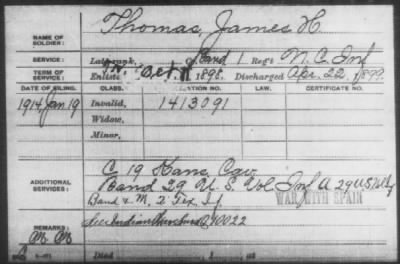 Thomas, James H
NAME OF SOLDIER:
SERVICE: Late rank, Band 1 Reg't N. C. Inf
TERM OF SERVICE: Enlisted Oct. 1898. Discharged Apr. 22, 1899.
DATE OF FILING. CLASS. APPLICATION NO. LAW. CERTIFICATE NO.
1914, Jan 19 Invalid, 1413091
Widow,
Minor,
C 19 Kans, Cav
ADDITIONAL SERVICES: Band 29 U. S. Vol Inf A 29 U S
Band & M. 2 Tex. If
WAR WITH SPAIN
See Indian 10022
REMARKS:
Died , 1 , at